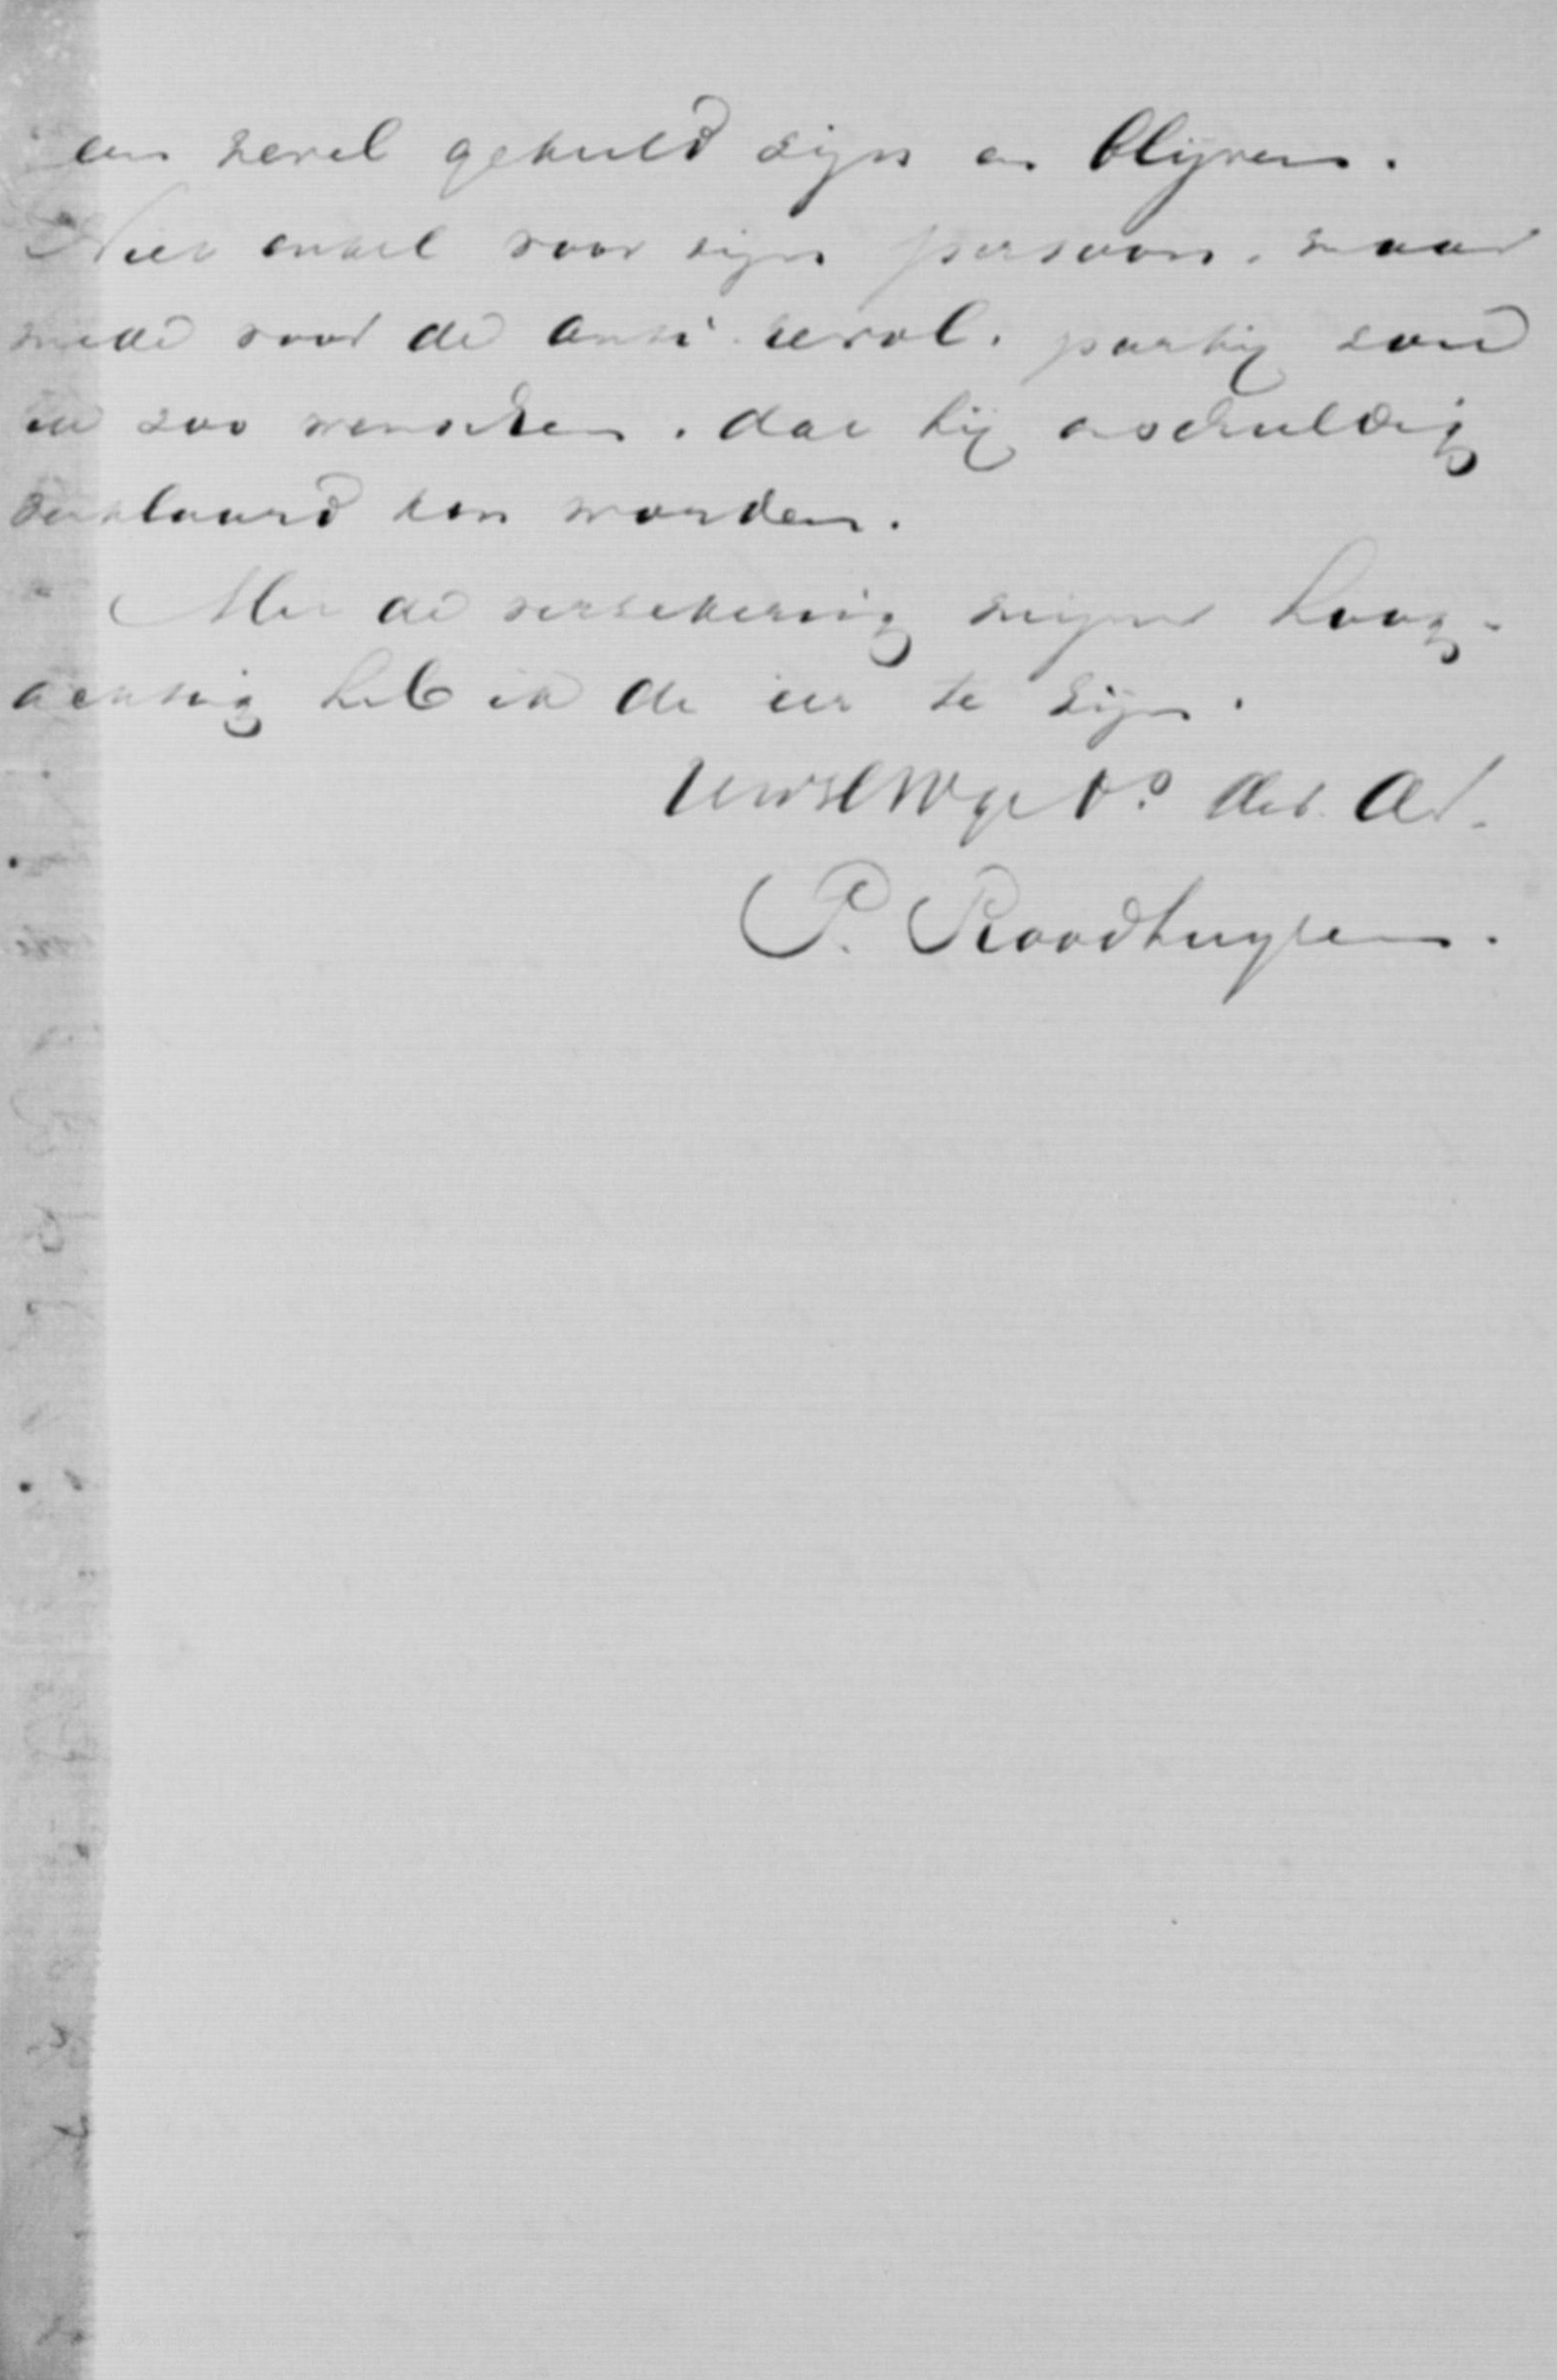 een nevel gehuld zijn en blijven.
Niet enkel voor zijn persoon, maar
mede voor de anti-revol. partij zou
ik zoo wenschen, dat hij onschuldig
verklaard kon worden.
Met de verzekering mijner hoog-
achting heb ik de eer te zijn.
P. Roodhuyzen.